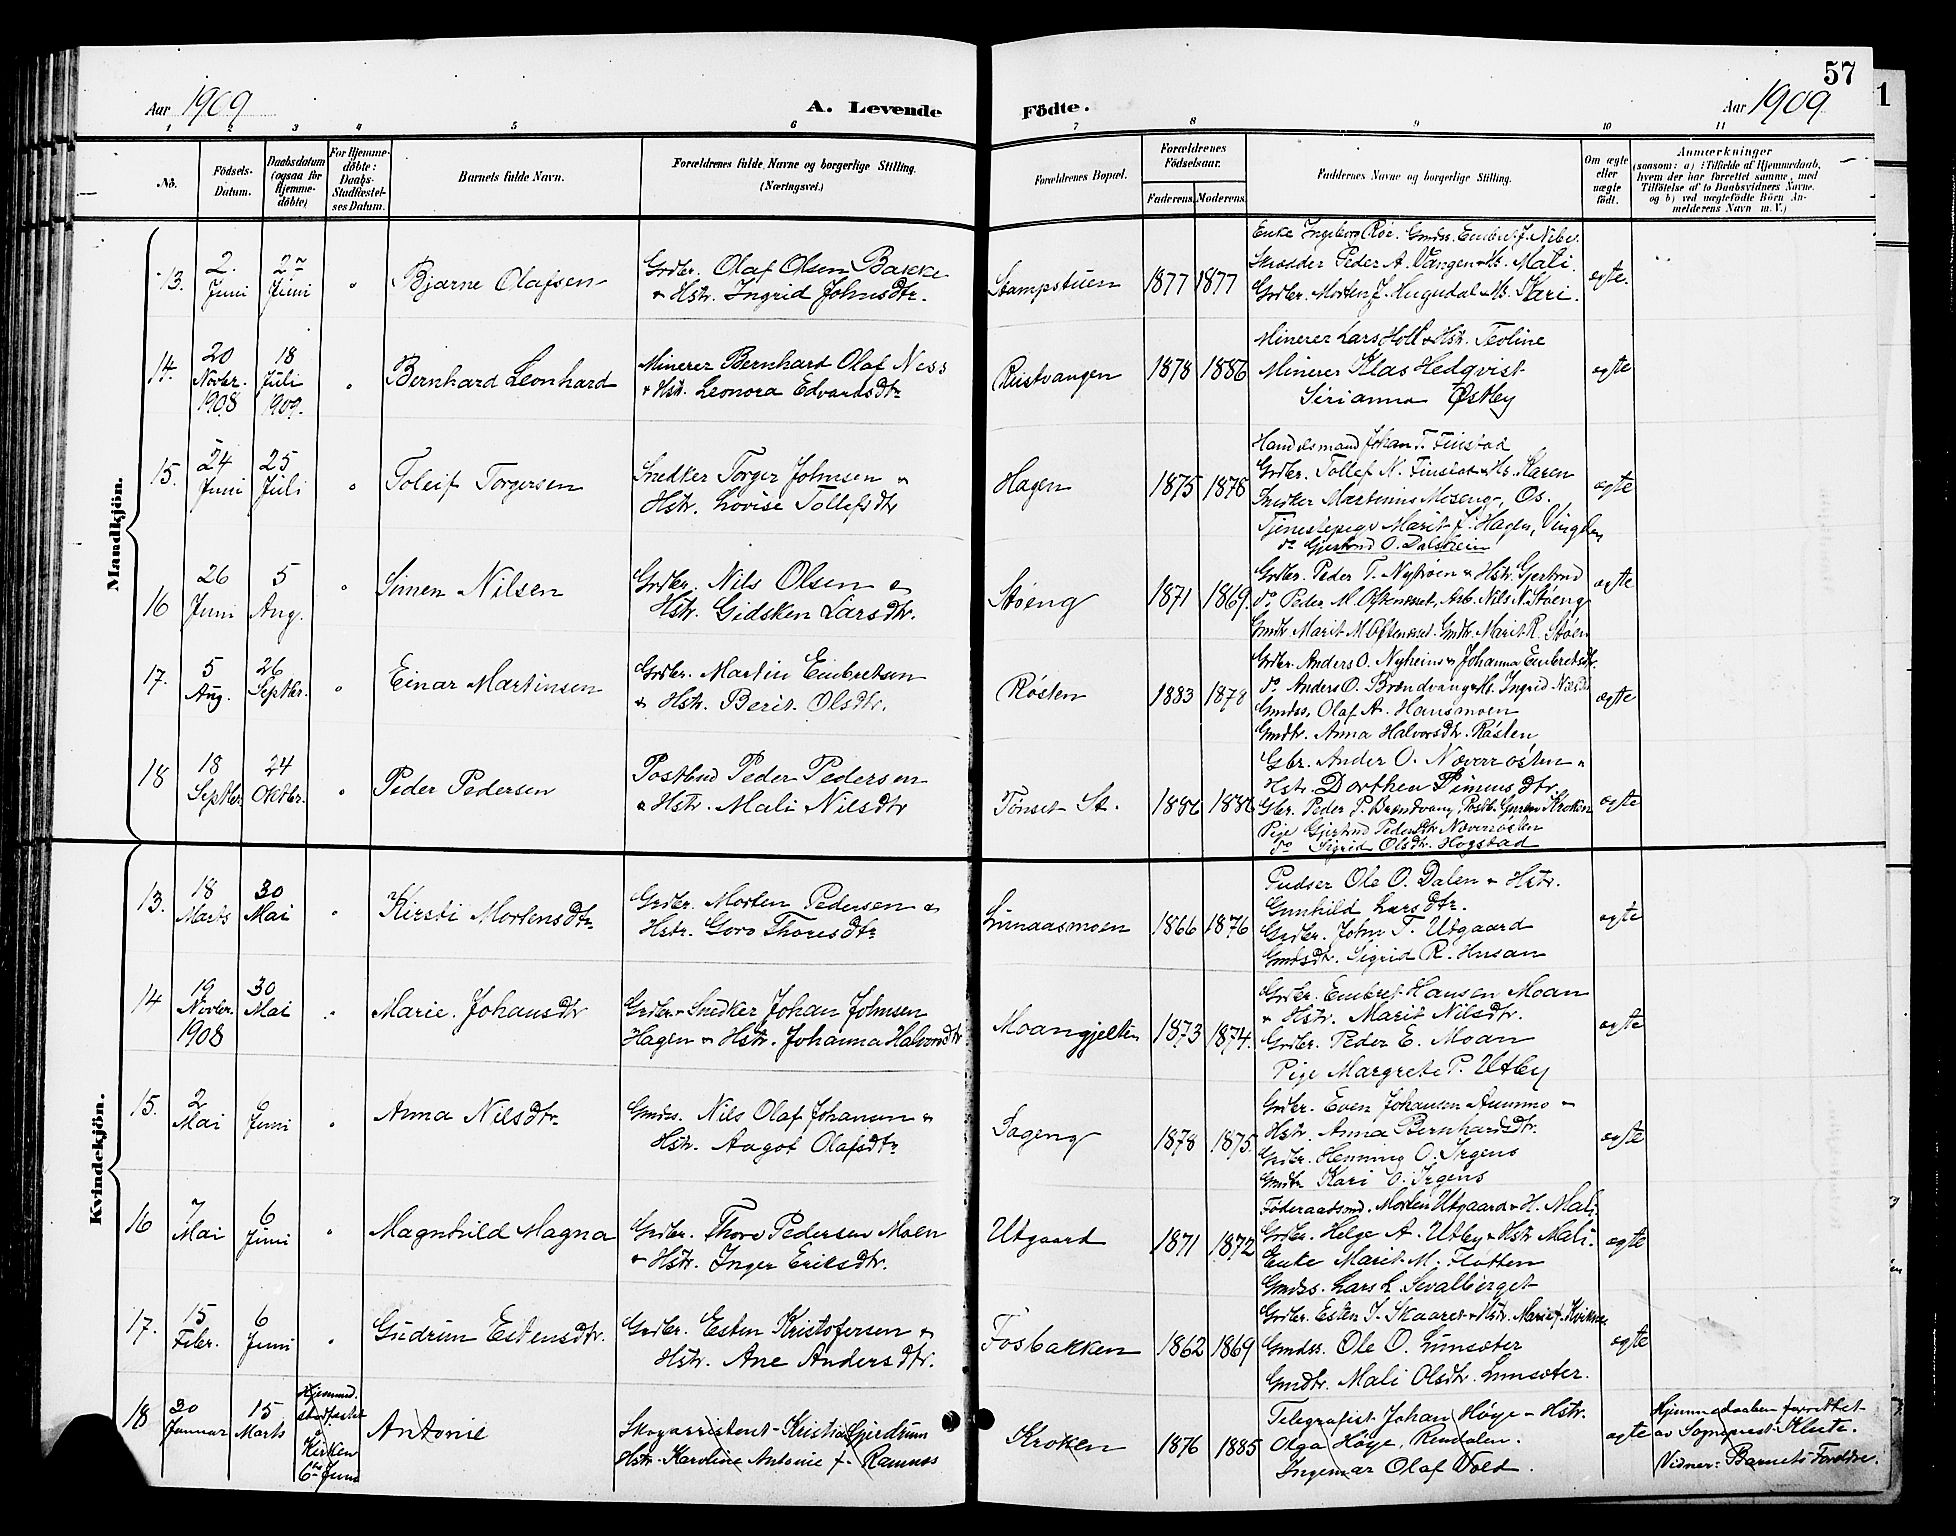 57
1
Aar 1909
A. Levende
Födte.
Aar 1909
1 2 3 4 5 6 7 8 9 10 11
No.
Födsels-
Datum.
Daabsdatum
(ogsaa for
Hjemme-
döbte)
For Hjemme-
döbte:
Daabs-
Stadfæstel-
ses Datum.
Barnets fulde Navn.
Forældrenes fulde Navne og borgerlige Stilling.
(Næringsvei.)
Forældrenes Bopæl.
Forældrenes
Födselsaar.
Faderens.
Moderens.
Faddernes Navne og borgerlige Stilling.
Om ægte
eller
uægte
födt.
Anmærkninger
(saasom: a) i Tilfælde af Hjemmedaab,
hvem der har forrettet samme, med
Tilföielse af to Daabsvidners Navne.
og b) ved uægtefödte Börn An-
melderens Navn m. V.)
Mandkjön.
13.
2.
Juni
Juni
"
Bjarne Olafsen
Grdbr. Olaf Olsen Bakke
& Hstr. Ingrid Johnsdtr.
Stampstuen
1877
1877
Enke Ingeborg Røe. Gmdss. Embret J.
Skrædder Peder A. Vangen & Hs. Mali.
Grdbr. Morten J. Hugudal & Hs. Kari.
ægte.
14.
20
Novbr.
1908
18
Juli
1909.
"
Bernhard Leonhard
Minerer Bernhard Olaf Ness
& Hstr. Leonora Edvardsdtr
Kustvangen
1878
1886
Minerer Lars Holl & Hstr. Teoline
Minerer Klas Hedqvist
Sirianna Østby
ægte
15.
24
Juni
25
Juli
"
Toleif Torgersen
Snedker Torger Johnsen &
Hstr. Lovise Tollefsdtr
Hagen
1875
1878
Handelsmand Johan T. Finstad
Grdbr. Tollef N. Finstad & Hs. Karen
Snedker Martinus Moseng, Os.
Tjenestepige Marit J. Hagen, Vingelen
do Gjertrud O. Dalsheim
ægte
16
26
Juni
5
Aug.
"
Simen Nilsen
Grdbr. Nils Olsen &
Hstr. Gidsken Larsdtr.
Støeng
1871
1869.
Grdbr. Peder T. Nytrøen & Hstr. Gjertrud
do Peder M. Oftenæset, Arb. Nils N. Støeng
Gmdtr. Marit M. Oftenæset. Gmdtr. Marit R. Støen
ægte
17.
5
Aug.
26
Septbr.
"
Einar Martinsen
Grdbr. Martin Embretsen
& Hstr. Berit Olsdtr.
Røsten
1883
1878
Grdbr. Anders O. Nyheim & Johanna Embretsdtr.
do Anders O. Brændvang & Hs. Ingrid Nilsdtr
Gmdss. Olaf A. Hansmoen
Gmdtr. Anna Halvorsdtr. Røsten
ægte
18
18
Septbr.
24
Oktbr.
"
Peder Pedersen
Postbud Peder Pedersen
& Hstr. Mali Nilsdtr
Tönset St.
1886
1886
Gbr. Ander O. Næverøsten &
Hstr. Dorthea Simensdtr.
Gbr. Peder P. Brændvang, Postb. Krokan
Pige Gjertrud Pedersdtr Næverøsten
do Sigrid Olsdtr. Hogstad
ægte
Kvindekjön.
13.
18
Marts
30
Mai
"
Kirsti Mortensdtr
Grdbr. Morten Pedersen &
Hstr. Goro Thoresdtr
Lunaasmoen
1866
1876
Pudser Ole O. Dalen & Hstr.
Gunhild Larsdtr.
Grdbr. John T. Utgaard
Gmdsdtr. Sigrid R. Husan
ægte
14
19
Novbr.
1908
30
Mai
"
Marie Johansdtr
Grdbr. & Snedker Johan Johnsen
Hagen & Hstr. Johanna Halvorsdtr
Moangjelten
1873
1874.
Grdbr. Embret Hansen Moan
& Hstr. Marit Nilsdtr.
Grdbr. Peder E. Moan
Pige Margrete P. Utby
ægte
15.
2
Mai
6
Juni
"
Anna Nilsdtr
Gmdss. Nils Olaf Johansen &
Hstr. Aagot Olafsdtr
Sageng
1878
1875.
Grdbr. Even Johansen Aummo &
Hstr. Anna Bernhardsdtr.
Grdbr. Henning O. Irgens
Gmdtr Kari O. Irgens
ægte
16
7
Mai
6
Juni
"
Magnhild Magna
Grdbr. Thore Pedersen Moen
& Hstr. Inger Eriksdtr.
Utgaard
1871
1872
Føderaadsmd. Morten Utgaard & H. Mali
Grdbr. Helge A. Utby & Hstr Mali.
Enke Marit M. Fløtten
Gmdss. Lars L. Sevalberget
ægte
17.
15
Febr.
6
Juni
"
Gudrun Estensdtr.
Grdbr. Esten Kristofersen &
Hstr. Ane Andersdtr.
Fosbakken
1862
1869
Grdbr. Esten J. Skaaret & Hstr. Marie f. Kvikne
Gmdss. Ole O. Lunsæter
Gmdtr. Mali Olsdtr. Lunsæter.
ægte
18
20
Januar
15
Marts
Hjemmed.
stadfæstet
i
Kirken
6te Juni
Antonie
Skogassistent Kristian Gjerdrum
Hstr. Karoline Antonie f. Ramnæs
Kroken
1876
1885
Telegrafist Johan Høye & Hstr.
Olga Høye, Rendalen.
Ingemar Olaf Vold.
ægte
Hjemmedaaben forrettet
av Sogneprest Klute.
Vidner: Barnets Forældre.